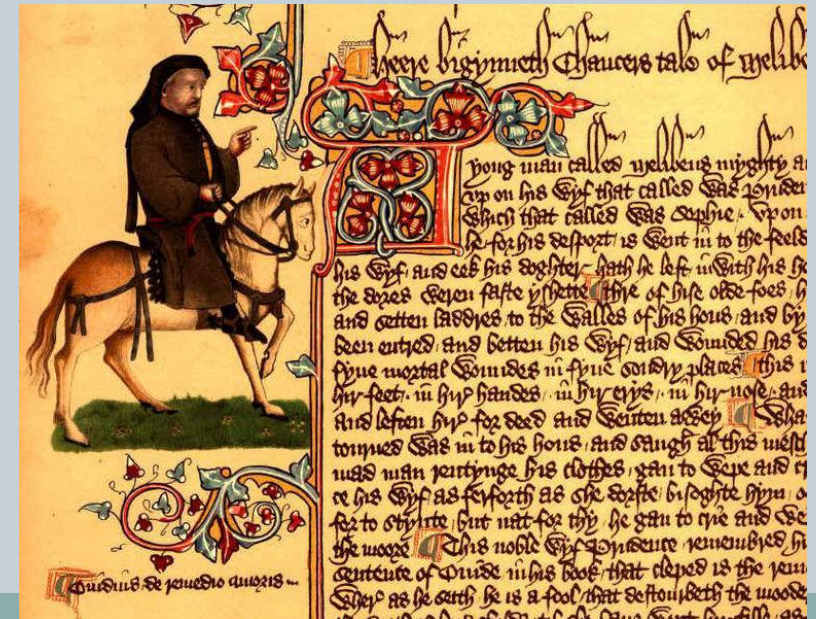 Heere bigynneth Chaucers tale of Melibe
yong man called Melibeus myghty a
vp on his wyf that called was Pruden
which that called was Sophie / vpon
he for his desport is went in to the feeld
his wyf / and eek his doghter / hath he left inwith his h
the dores weren faste yshette / thre of hise olde foes / h
and setten laddres to the walles of his hous / and by
been entred / and betten his wyf / and wounded his d
fyue mortal woundes in fyue sondry places / this i
hir feet / in hir handes / in hir erys / in hir nose / and
and leften hir for deed and wenten awey wha
tourned was in to his hous / and saugh al this mesch
mad man rentynge his clothes / gan to wepe and c
ce his wyf as ferforth as she dorste / bisoghte hym
for to stynte / but nat for thy / he gan to crie and we
the moore This noble wyf Prudence remembred hi
sentence of Ouide in his book / that cleped is the rem
wher as he seith he is a fool / that destourbeth the mooder
Ouidius de remedio amoris